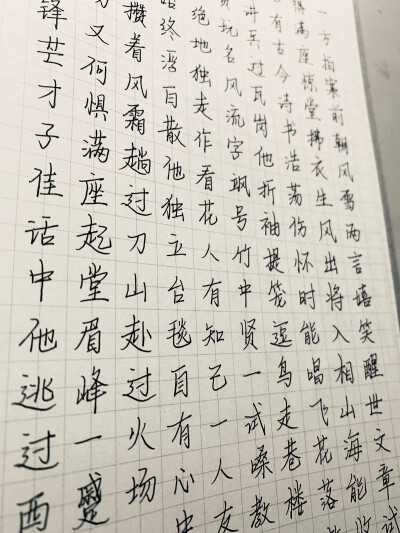 一方拍案前朝风雪两言嬉笑醒世文章试
满座惊堂拂衣生风出将入相山海能收
有古今诗书浩荡伤怀时能唱飞花落
讲兵过瓦岗他折袖提笼逗鸟走巷楼
玩名风流字飒号竹中贤一试嗓教
绝地独走作看花人有知己一人友
始终语自散他独立台毯自有心中
攒着风霜趟过刀山赴过火场
又何惧满座起堂眉峰一蹙
锋芒才子佳话中他逃过西